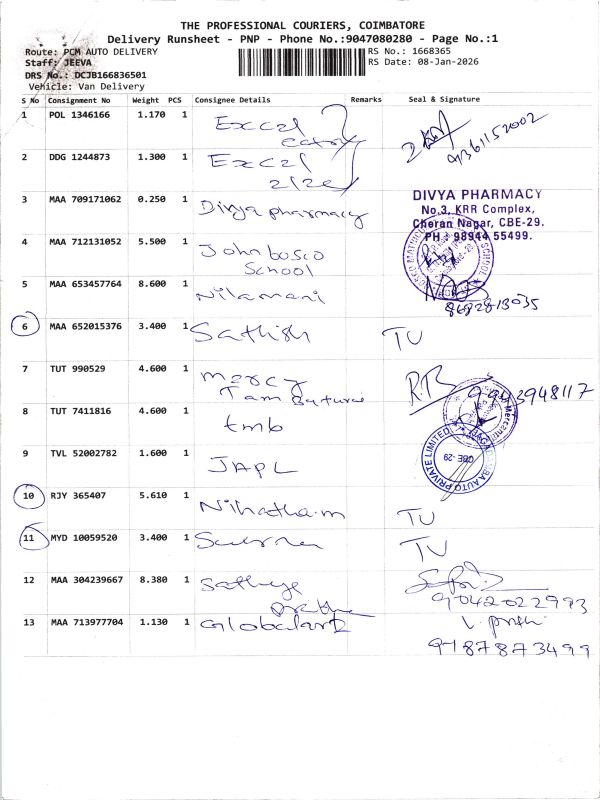 THE PROFESSIONAL COURIERS, COIMBATORE
Delivery Runsheet - PNP - Phone No.:9047080280 - Page No.:1
Route: PCM AUTO DELIVERY
RS No.: 1668365
Staff: JEEVA
RS Date: 08-Jan-2026
DRS No.: DCJB166836501
Vehicle: Van Delivery
S No Consignment No Weight PCS Consignee Details Remarks Seal & Signature
1 POL 1346166 1.170 1 Excel
9361152002
2 DDG 1244873 1.300 1 Excel
3 MAA 709171062 0.250 1 Divya pharmacy
DIVYA PHARMACY
No.3, KRR Complex,
Cheran Nagar, CBE-29.
PH : 98944 55499.
4 MAA 712131052 5.500 1 John bosco
School
5 MAA 653457764 8.600 1 Nilamani
8682813035
6 MAA 652015376 3.400 1 Sathish TU
7 TUT 990529 4.600 1 Mercy
9943948117
8 TUT 7411816 4.600 1 tmb
9 TVL 52002782 1.600 1 JAPL
CBE-29
10 RJY 365407 5.610 1 TU
11 MYD 10059520 3.400 1 TU
12 MAA 304239667 8.380 1
9042022993
13 MAA 713977704 1.130 1
9787873499